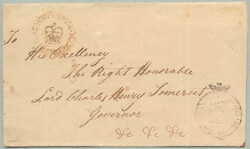 To
His Excellency
The Right Honorable
Lord Charles Henry Somerset
Governor
&c &c &c